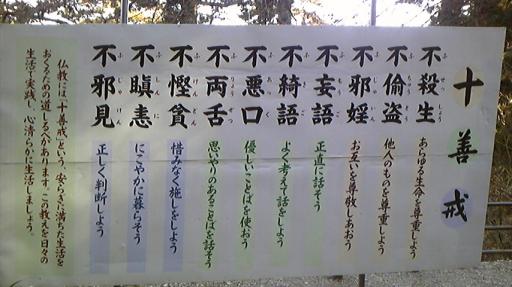 十善戒
不殺生 あらゆる生命を尊重しよう
不偸盗 他人のものを尊重しよう
不邪婬 お互いを尊敬しあおう
不妄語 正直に話そう
不綺語 よく考えて話をしよう
不悪口 優しいことばを使おう
不両舌 思いやりのあることばを話そう
不慳貪 惜みなく施しをしよう
不瞋恚 にこやかに暮らそう
不邪見 正しく判断しよう
仏教には、「十善戒」という、安らぎに満ちた生活を
おくるための道しるべがあります。この教えを日々の
生活で実践し、心清らかに生活しましょう。